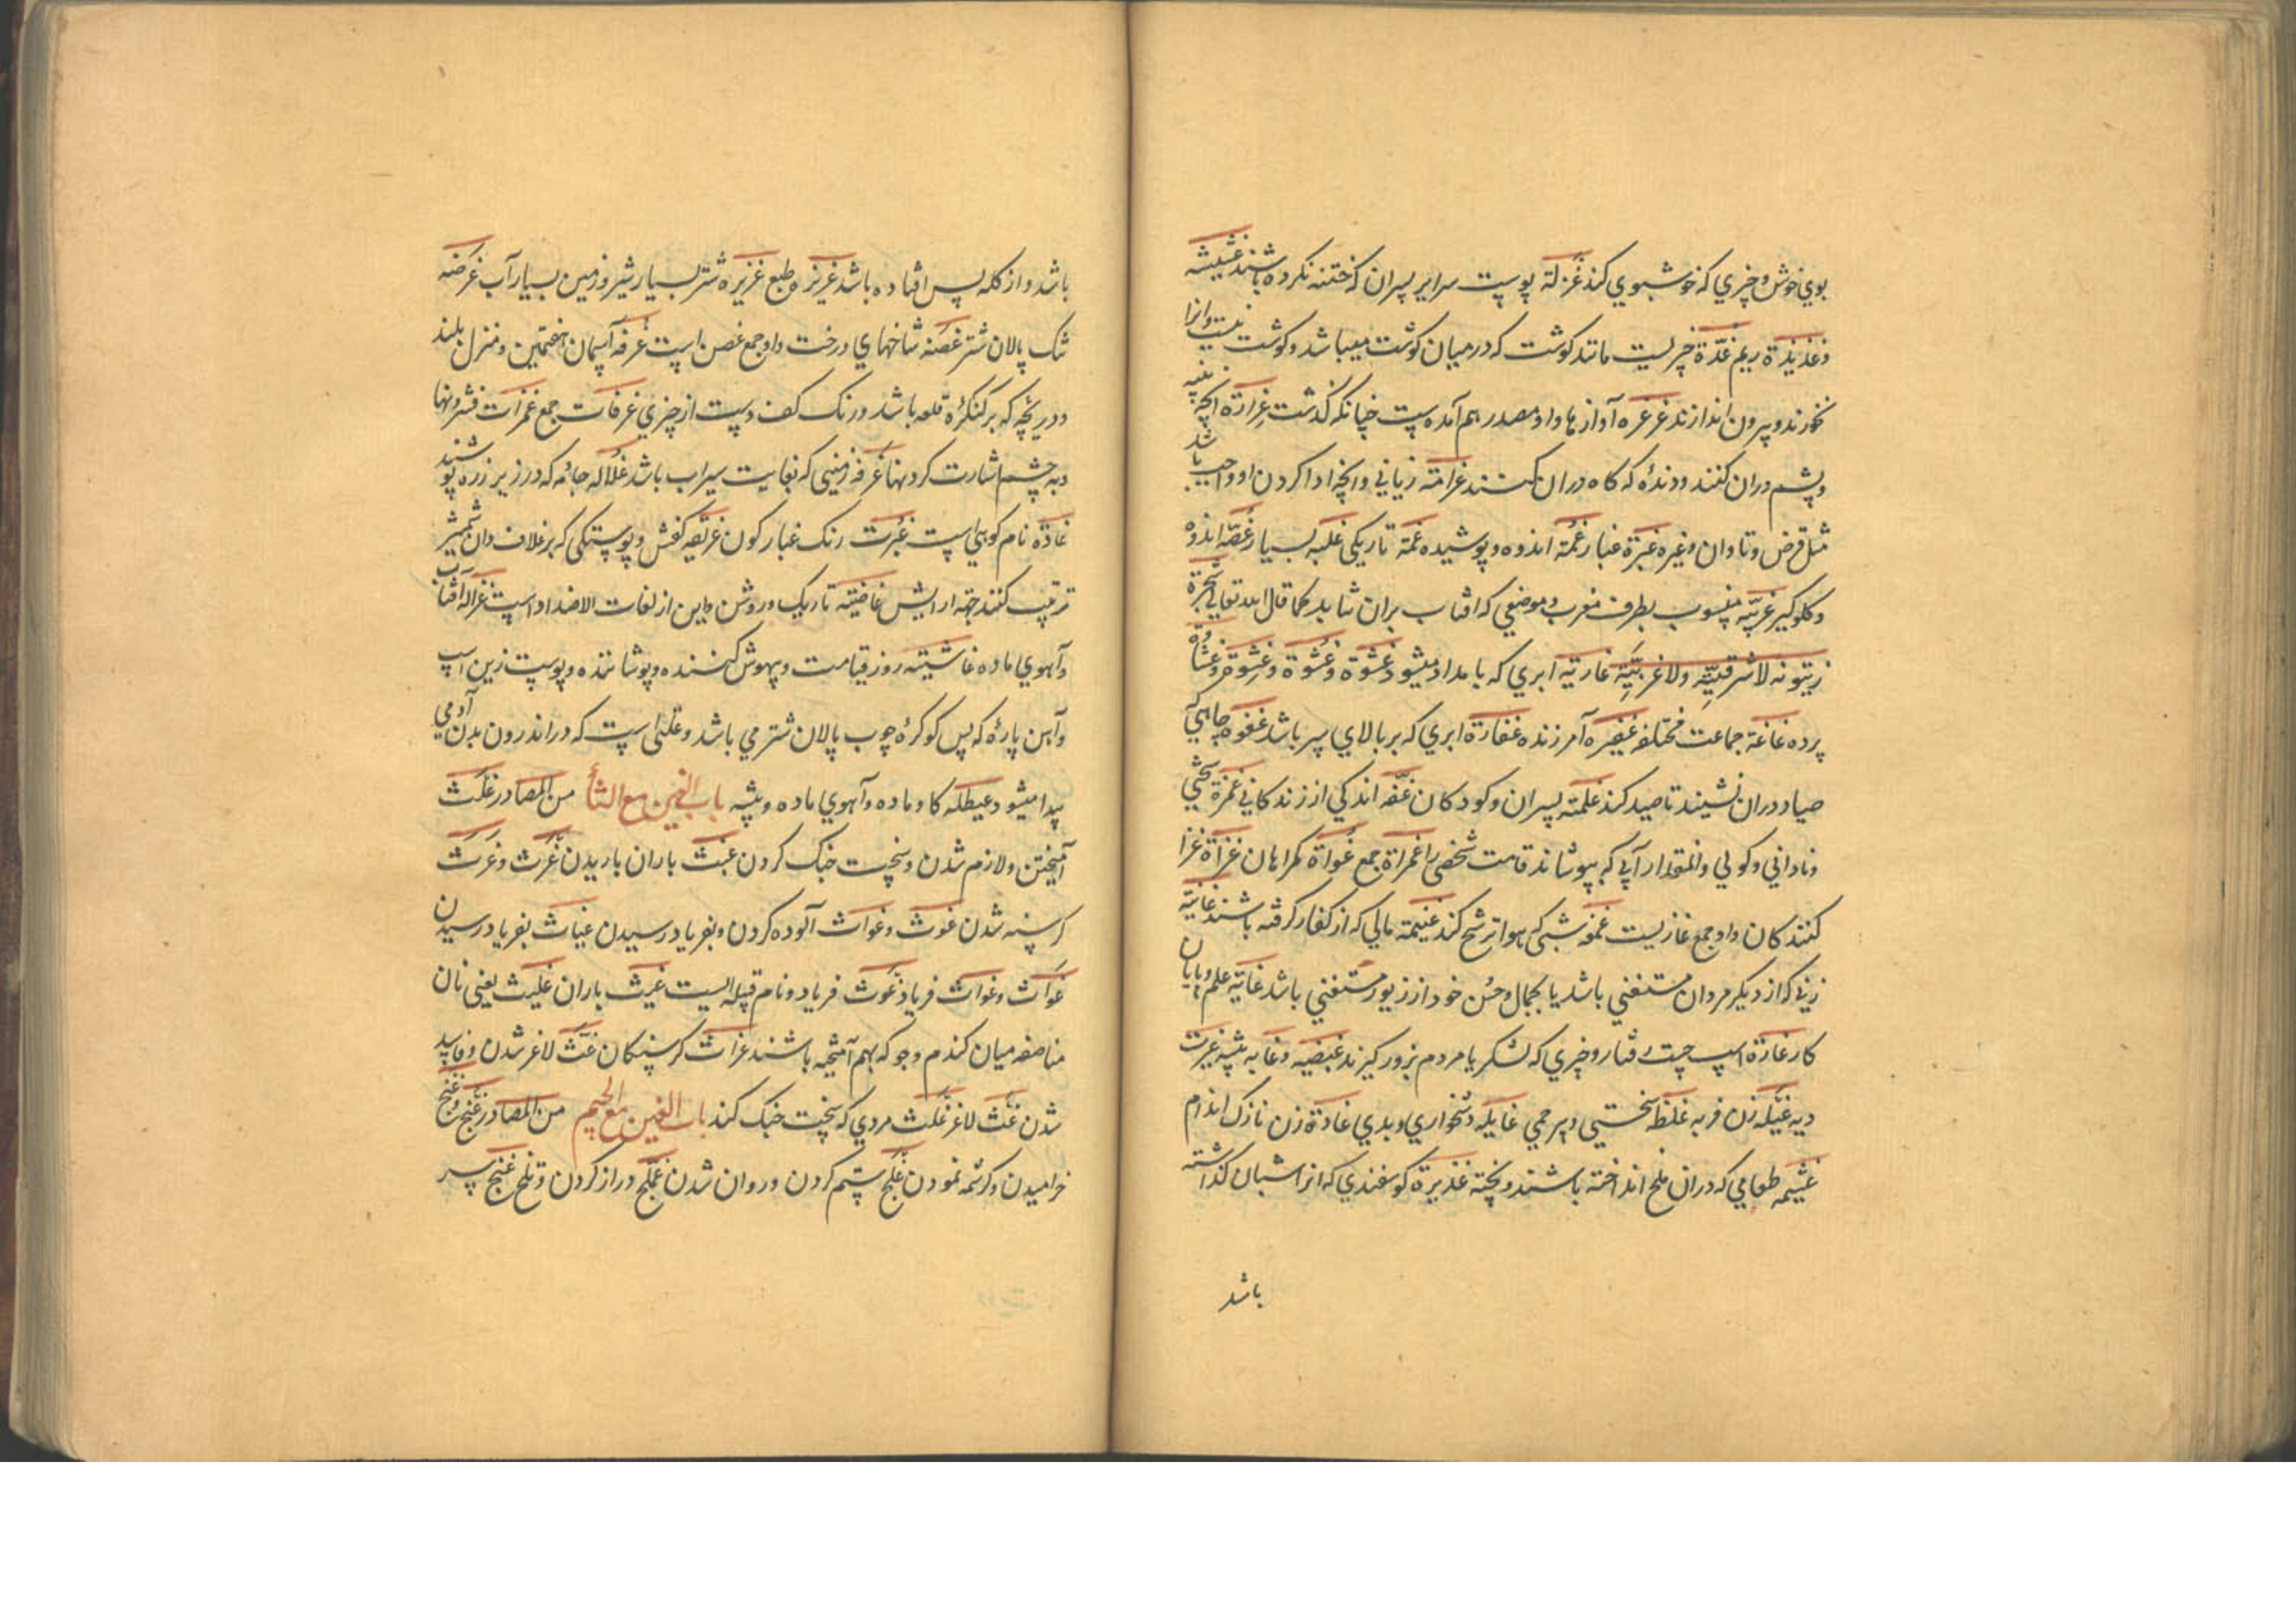 بوي خوش و چيزي كه خوشبوي كند غزلة پوست سراير پسران كه ختنه نكرده باشند غشيشه
و غذيذة ريم غدّة چيزيست مانند كوشت كه درميان كوشت ميباشد و كوشت نيست وانرا
نخورند و بيرون اندازند غرغره آوازها واو مصدر هم آمده است چنانكه كذشت غرارة انچه پنبه
و پشم دران كنند و دنده كه كاه دران كشند غرامة زياني و انچه ادا كردن او واجب باشد
مثل قرض و تاوان و غيره غبرة غبار غمّة اندوه و پوشيده غمّة تاريكي غلبه بسيار غصّه اندوه
و كلوكير غربيّه منسوب بطرف مغرب و موضعي كه افتاب بران نتابد كما قال الله تعالي شجرة
زيتونه لا شرقيّة ولا غربيّة غاريه ابري كه بامداد ميشود غشوة و غشوة و غشوة و غشاوة
پرده غاغة جماعت مختلفه غفيره آمرزنده غفارة ابري كه بر بالاي سر باشد جاهي كه
صياد دران نشيند تا صيد كند غلمة پسران و كودكان غفّه اندكي از زندكاني غمرة سختي
و ناداني و كولي و انمقدار آبي كه بپوشاند قامت شخص را غمراة جمع غواة كمراهان غزاة غزا
كنندكان واو جمع غازيست غمغه شبي كه هوا ترشح كند غنيمة مالي كه از كفار كرفته باشند غانية
زني كه از ديكر مردان مستغني باشد يا بجمال و حسن خود از زيور مستغني باشد غاية علم و پايان
كار غارة اسپ چست رفتار و چيزي كه لشكر يا مردم بزور كيرند غيضه و غابه بيشه غيرت
ديه غيله زن فربه غلظه سختي و بيرحمي غايله دشخواري و بدي غادة زن نازك اندام
غثيمه طعامي كه دران ملح انداخته باشند و پخته غذيرة كوسفندي كه انرا شبان كذاشته
باشد
باشد و از كله پس افتاده باشد غريزه طبع غزيره شتر بسيار شير و زمين بسيار آب غرضه
تنك پالان شتر غصنه شاخهاي درخت واو جمع غصن است غرفه آسمان هفتمين و منزل بلند
و دريچه كه بر كنكره قلعه باشد و رنك كف دست از چيزي غرفات جمع غمزات فشردنها
و به چشم اشارت كردنها غرفه زميني كه بغايت سيراب باشد غلاله جامه كه در زير زره پوشند
غادة نام كوهي است غبرت رنك غباركون كفش و پوستكي كه بر غلاف دان شمشير
ترتيب كنند جهة ارايش غاضية تاريك و روشن و اين از لغات الاضداد است غزاله آفتاب
و آهوي ماده غاشية روز قيامت و بيهوش كننده و پوشاننده و پوست زين اسپ
و آهن پاره كه پس كوكره چوب پالان شتر مي باشد و علتي است كه در اندرون بدن آدمي
پيدا ميشود غيطله كاو ماده و آهوي ماده و بيشه باب الغين مع الثاء من المصادر غلث
آميختن و لازم شدن و سخت جنك كردن غيث باران باريدن غرث و غرث
كرسنه شدن غوث و غواث آلوده كردن و بفرياد رسيدن غياث بفرياد رسيدن
غواث و غواث فرياد غوث فرياد و نام قبيله ايست غيث باران غليث يعني نان
مناصفه ميان كندم و جو كه بهم آميخته باشند غراث كرسنكان غثّ لاغر شدن و فاسد
شدن غثّ لاغر غلث مردي كه سخت جنك كند باب الغين مع الجيم من المصادر غنج و غنج
خراميدن و كرشمه نمودن غلج ستم كردن و روان شدن غملج دراز كردن و تلخ غنج پير